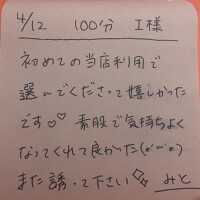 4/12 100分 I様
初めての当店利用で
選んでくださって嬉しかった
です♡♡ 素股で気持ちよく
なってくれて良かった(о´ω`о)
また誘って下さい◇◇ みと